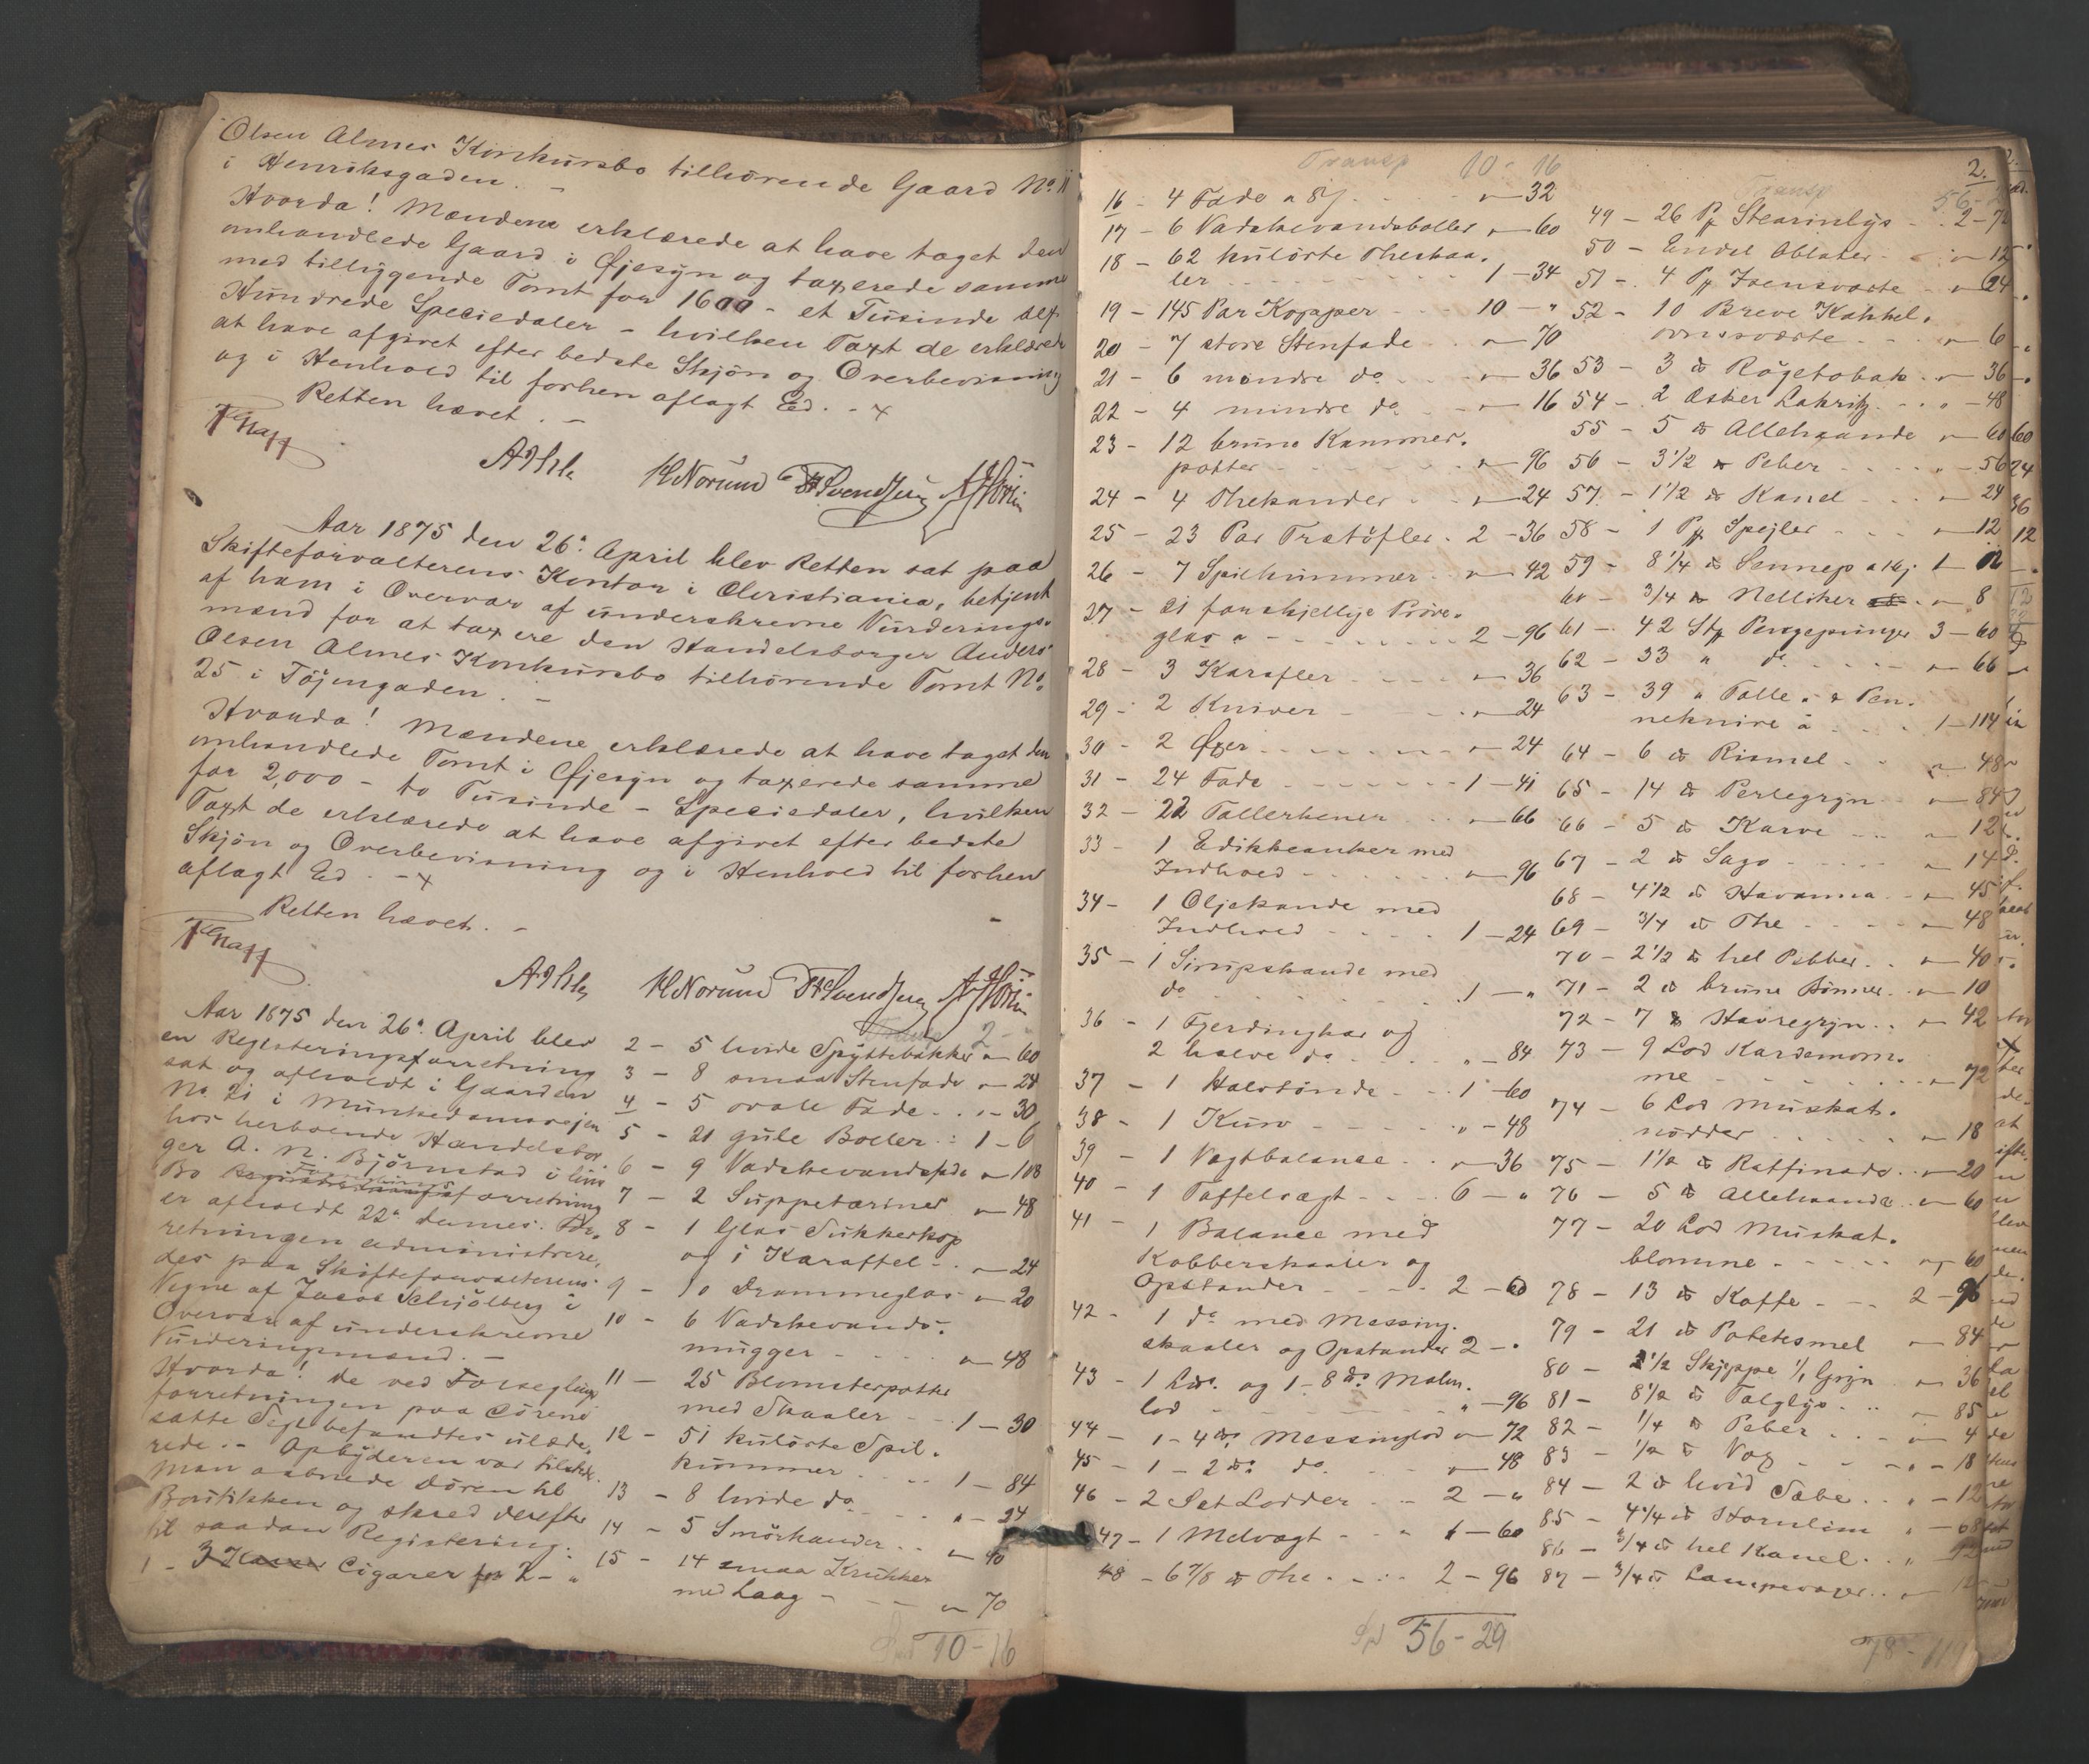 Olsen Almes Konkursbo tilhørende Gaard No 11
i Henriksgaden. –
Hvorda! Mændene erklærede at have taget den
omhandlede Gaard i Øjesyn og taxerede samme
med tilliggende Tomt for 1600 – et Tusinde sex
Hundrede Speciedaler – hvilken Taxt de erklærede
at have afgivet efter bedste Skjøn og Overbevisning
og i Henhold til forhen aflagt Ed. –
Retten hævet. –
HNorum FrSvendsen
Aar 1875 den 26. April blev Retten sat paa
Skifteforvalterens Kontor i Christiania, betjent
af ham i Overvær af underskrevne Vurderings-
mænd for at taxere den Handelsborger Anders
Olsen Almes Konkursbo tilhørende Tomt No.
25 i Töjengaden. –
Hvorda! Mændene erklærede at have taget den
omhandlede Tomt i Øjesyn og taxerede samme
for 2,000 – to Tusinde – Speciedaler, hvilken
Taxt de erklærede at have afgivet efter bedste
Skjön og Overbevisning og i Henhold til forhen
aflagt Ed. –
Retten hævet. –
HNorum FrSvendsen
Aar 1875 den 26. April blev
en Registeringsforretning
sat og afholdt i Gaarden
No. 21 i Munkedamsvejen
hos herboende Handelsbor
ger A. N. Björnstad i hvis
Bo forretning
er afholdt 22. dennes. For.
retningen administrere.
des paa Skifteforvalterens
Vegne af Jacob Schjölberg i
Overvær af underskrevne
Vurderingsmænd. –
Hvorda! De ved Forseglings
forretningen paa Dörene
satte Segl befandtes ulæde.
rede. – Opbyderen var tilstede.
Man aabnede Dören til
Boutikken og skred derefter
til saadan Registering:
1 – 3 Kasser Cigarer for 2 – "
Transp 2 –
2 – 5 hvide Spyttebakker " – 60
3 – 8 smaa Stenfade " – 24
4 – 5 ovale Fade . . " – 30
5 – 21 gule Boller . : 1 – 6
6 – 9 Vadskevandsfade " – 108
7 – 2 Suppeteriner " – 48
8 – 1 Glas Sukkerkop
og 1 Karaffel – . " – 24
9 – 10 Drammeglas " – 20
10 – 6 Vadskevands-
mugger – . . . . " – 48
11 – 25 Blomsterpotter
med Skaaler – . . 1 – 30
12 – 51 kulörte Spil.
kummer . . . . 1 – 84
13 – 8 hvide do . . . " – 24
14 – 5 Smörkander . . " – 40
15 – 14 smaa Krukker
med Laag – – – " – 70
Spd 10 – 16
2.
Transp 10 – 16
16 – 4 Fade a 8 ſ . . . . " – 32
17 – 6 Vadskevandsboller " – 60
18 – 62 kulörte Theskaa.
ler . . . . . . . 1 – 34
19 – 145 Par Kopper . . . 10 – "
20 – 7 store Stenfade . . " – 70
21 – 6 mindre do . . . " – 36
22 – 4 mindre do. . . " – 16
23 – 12 brune Kammer.
potter . . . . . . " – 96
24 – 4 Thekander . . " – 24
25 – 23 Par Trætöfler . 2 – 36
26 – 7 Spilkummer . . " – 42
27 – 21 forskjellige Pröve.
glas a . . . . . . 2 – 96
28 – 3 Karafler . . . . " – 36
29 – 2 Kniver – . . . " – 24
30 – 2 Øxer . . . . . " – 24
31 – 24 Fade . . . . . 1 – 41
32 – 22 Tallerkener . . . " – 66
33 – 1 Edikkeanker med
Indhold . . . . . " – 96
34 – 1 Oljekande med
Indhold . . . . . 1 – 24
35 – 1 Sirupskande med
do . . . . . . . 1 – "
36 – 1 Fjerdingkar og
2 halve do . . . . " – 84
37 – 1 Halvtönde . . . 1 – 60
38 – 1 Kurv . . . . . " – 48
39 – 1 Vægtbalance . . " – 36
40 – 1 Taffelvægt . . . 6 – "
41 – 1 Balance med
Kobberskaaler og
Opstander . . . . 2 – 60
42 – 1 do med Messing.
skaaler og Opstander 2 – "
43 – 1 Lod. og 1 – 8 do Malm.
lod . . . . . . . " – 96
44 – 1 – 4 do Messinglod " – 72
45 – 1 – 2 do do. . . . " – 48
46 – 2 Set Lodder . . . 2 – "
47 – 1 Melvægt . . . 1 – 60
48 – 6 7/8 ℔ The . . . . 2 – 96
Spd 56 – 29
Transp 56 – 29
49 – 26 Pk Stearinlys . . 2 – 72
50 – Endel Oblater . . . " – 12
51 – 4 Pk Jernsværte . " – 24
52 – 10 Breve Kakkel.
ovnssværte . . . " – 6
53 – 3 ℔ Røgetobak . " – 36
54 – 2 Æsker Lakritz . . " – 48
55 – 5 ℔ Allehaande " – 60
56 – 3 1/2 ℔ Peber . . . " – 56
57 – 1 1/2 ℔ Kanel . . . " – 24
58 – 1 Pk Spejler . . . " – 12
59 – 8 1/4 ℔ Sennep a 16 ſ 1 – 12
60 – 3/4 ℔ Nelliker . " – 8
61 – 42 Stk Pengepunger 3 – 60
62 – 33 " do . . . . " – 66
63 – 39 " Tolle. & Pen.
neknive a . . . 1 – 114
64 – 6 ℔ Rismel . . " – 48
65 – 14 ℔ Perlegryn . . " – 84
66 – 5 ℔ Karve . . . " – 12
67 – 2 ℔ Sago . . . . " – 14
68 – 4 1/2 ℔ Havanna . . " – 45
69 – 3/4 ℔ The . . . . " – 48
70 – 2 1/2 ℔ hel Pebber . . " – 40
71 – 2 ℔ brune Bönner . " – 10
72 – 7 ℔ Havregryn . . " – 42
73 – 9 Lod Kardemom.
me . . . . . . . " – 72
74 – 6 Lod Muskat.
nødder . . . . . " – 18
75 – 1 1/2 ℔ Raffinade . . " – 20
76 – 5 ℔ Allehaande . . " – 60
77 – 20 Lod Muskat.
blomme . . . . . " – 60
78 – 13 ℔ Kaffe . . . 2 – 96
79 – 21 ℔ Potetesmel " – 84
80 – 2 1/2 Skjeppe 1/1 Gryn " – 36
81 – 8 1/2 ℔ Talglys . . " – 85
82 – 1/4 ℔ Peber . . . " – 4
83 – 1/2 ℔ Vox . . . . " – 18
84 – 2 ℔ hvid Sæbe . . " – 12
85 – 4 1/4 ℔ Hornlim " – 68
86 – 3/4 ℔ hel Kanel . . " – 12
87 – 3/4 ℔ Lampevæger . . " – 12
78 – 119